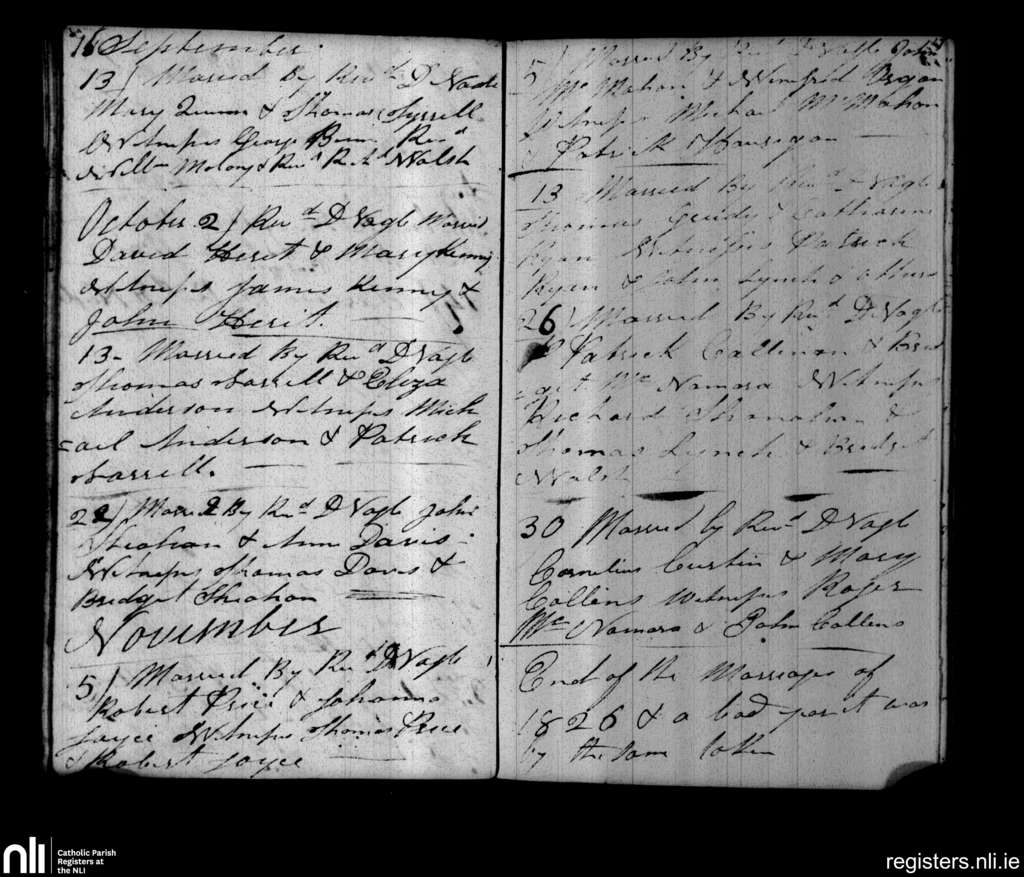 16 September.
13) Maried By Revd D Nagle
Mary Quinn & Thomas Tyrrell
Witnefses George Revd
Willm Molony & Revd Richd Walsh
October 2) Revd D Nagle Married
David Herit & Mary Kenny
Witnefses James Kenny &
John Herit.
13- Married By Revd D Nagle
Thomas Farrell & Eliza
Anderson Witnefses Mich
=ael Anderson & Patrick
Farrell.
22) Married By Revd D Nagle John
Sheahan & Ann Davis.
Witnefses Thomas Davis &
Bridget Sheahan
November
5) Married By Revd D Nagle
Robert Price & Johanna
Joyce Witnefses Thomas Price
& Robert Joyce
5) Married By Revd D Nagle John
Mc Mahon & Winfrid Bryan
Witnefses Michal McMahon
& Patrick Hourigan
13 Married By Revd D Nagle
Thomas & Catharine
Ryan Witnefses Patrick
Ryan & John Lynch & others
26) Married By Revd D Nagle
Patrick Callinan & Brid
=get Mc Namara Witnefses
Richard Shanahan &
Thomas Lynch & Bridget
Walsh
30 Married by Revd D Nagle
Cornelius Curtin & Mary
Collens witnefses Roger
Mc Namara & John Collens
End of the Marriages of
1826 & a bad year it was
by the same token
nli
Catholic Parish
Registers at
the NLI
registers.nli.ie